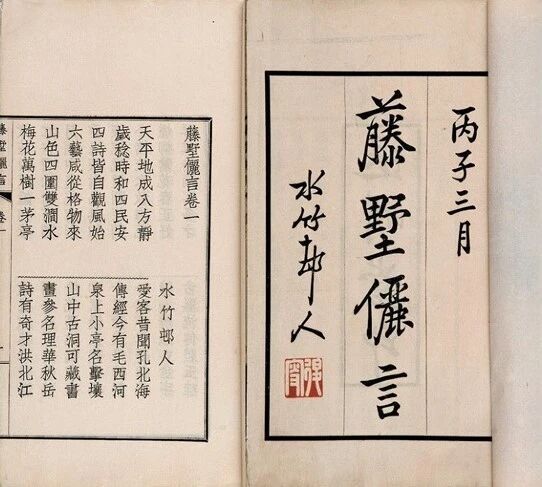 丙子三月
藤墅儷言
水竹邨人
藤墅儷言卷一
水竹邨人
天平地成八方靜　愛客昔聞孔北海
歲稔時和四民安　傳經今有毛西河
四詩皆自觀風始　泉上小亭名擊壤
六藝咸從格物來　山中古洞可藏書
山色四圍雙澗水　畫參名理華秋岳
梅花萬樹一茅亭　詩有奇才洪北江
藤墅儷言　卷一